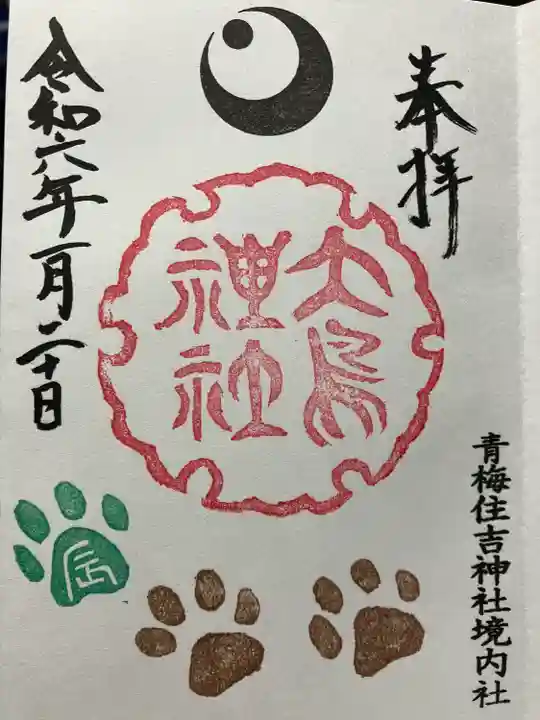 奉拝
大鳥
神社
令和六年一月二十日
青梅住吉神社境内社
辰